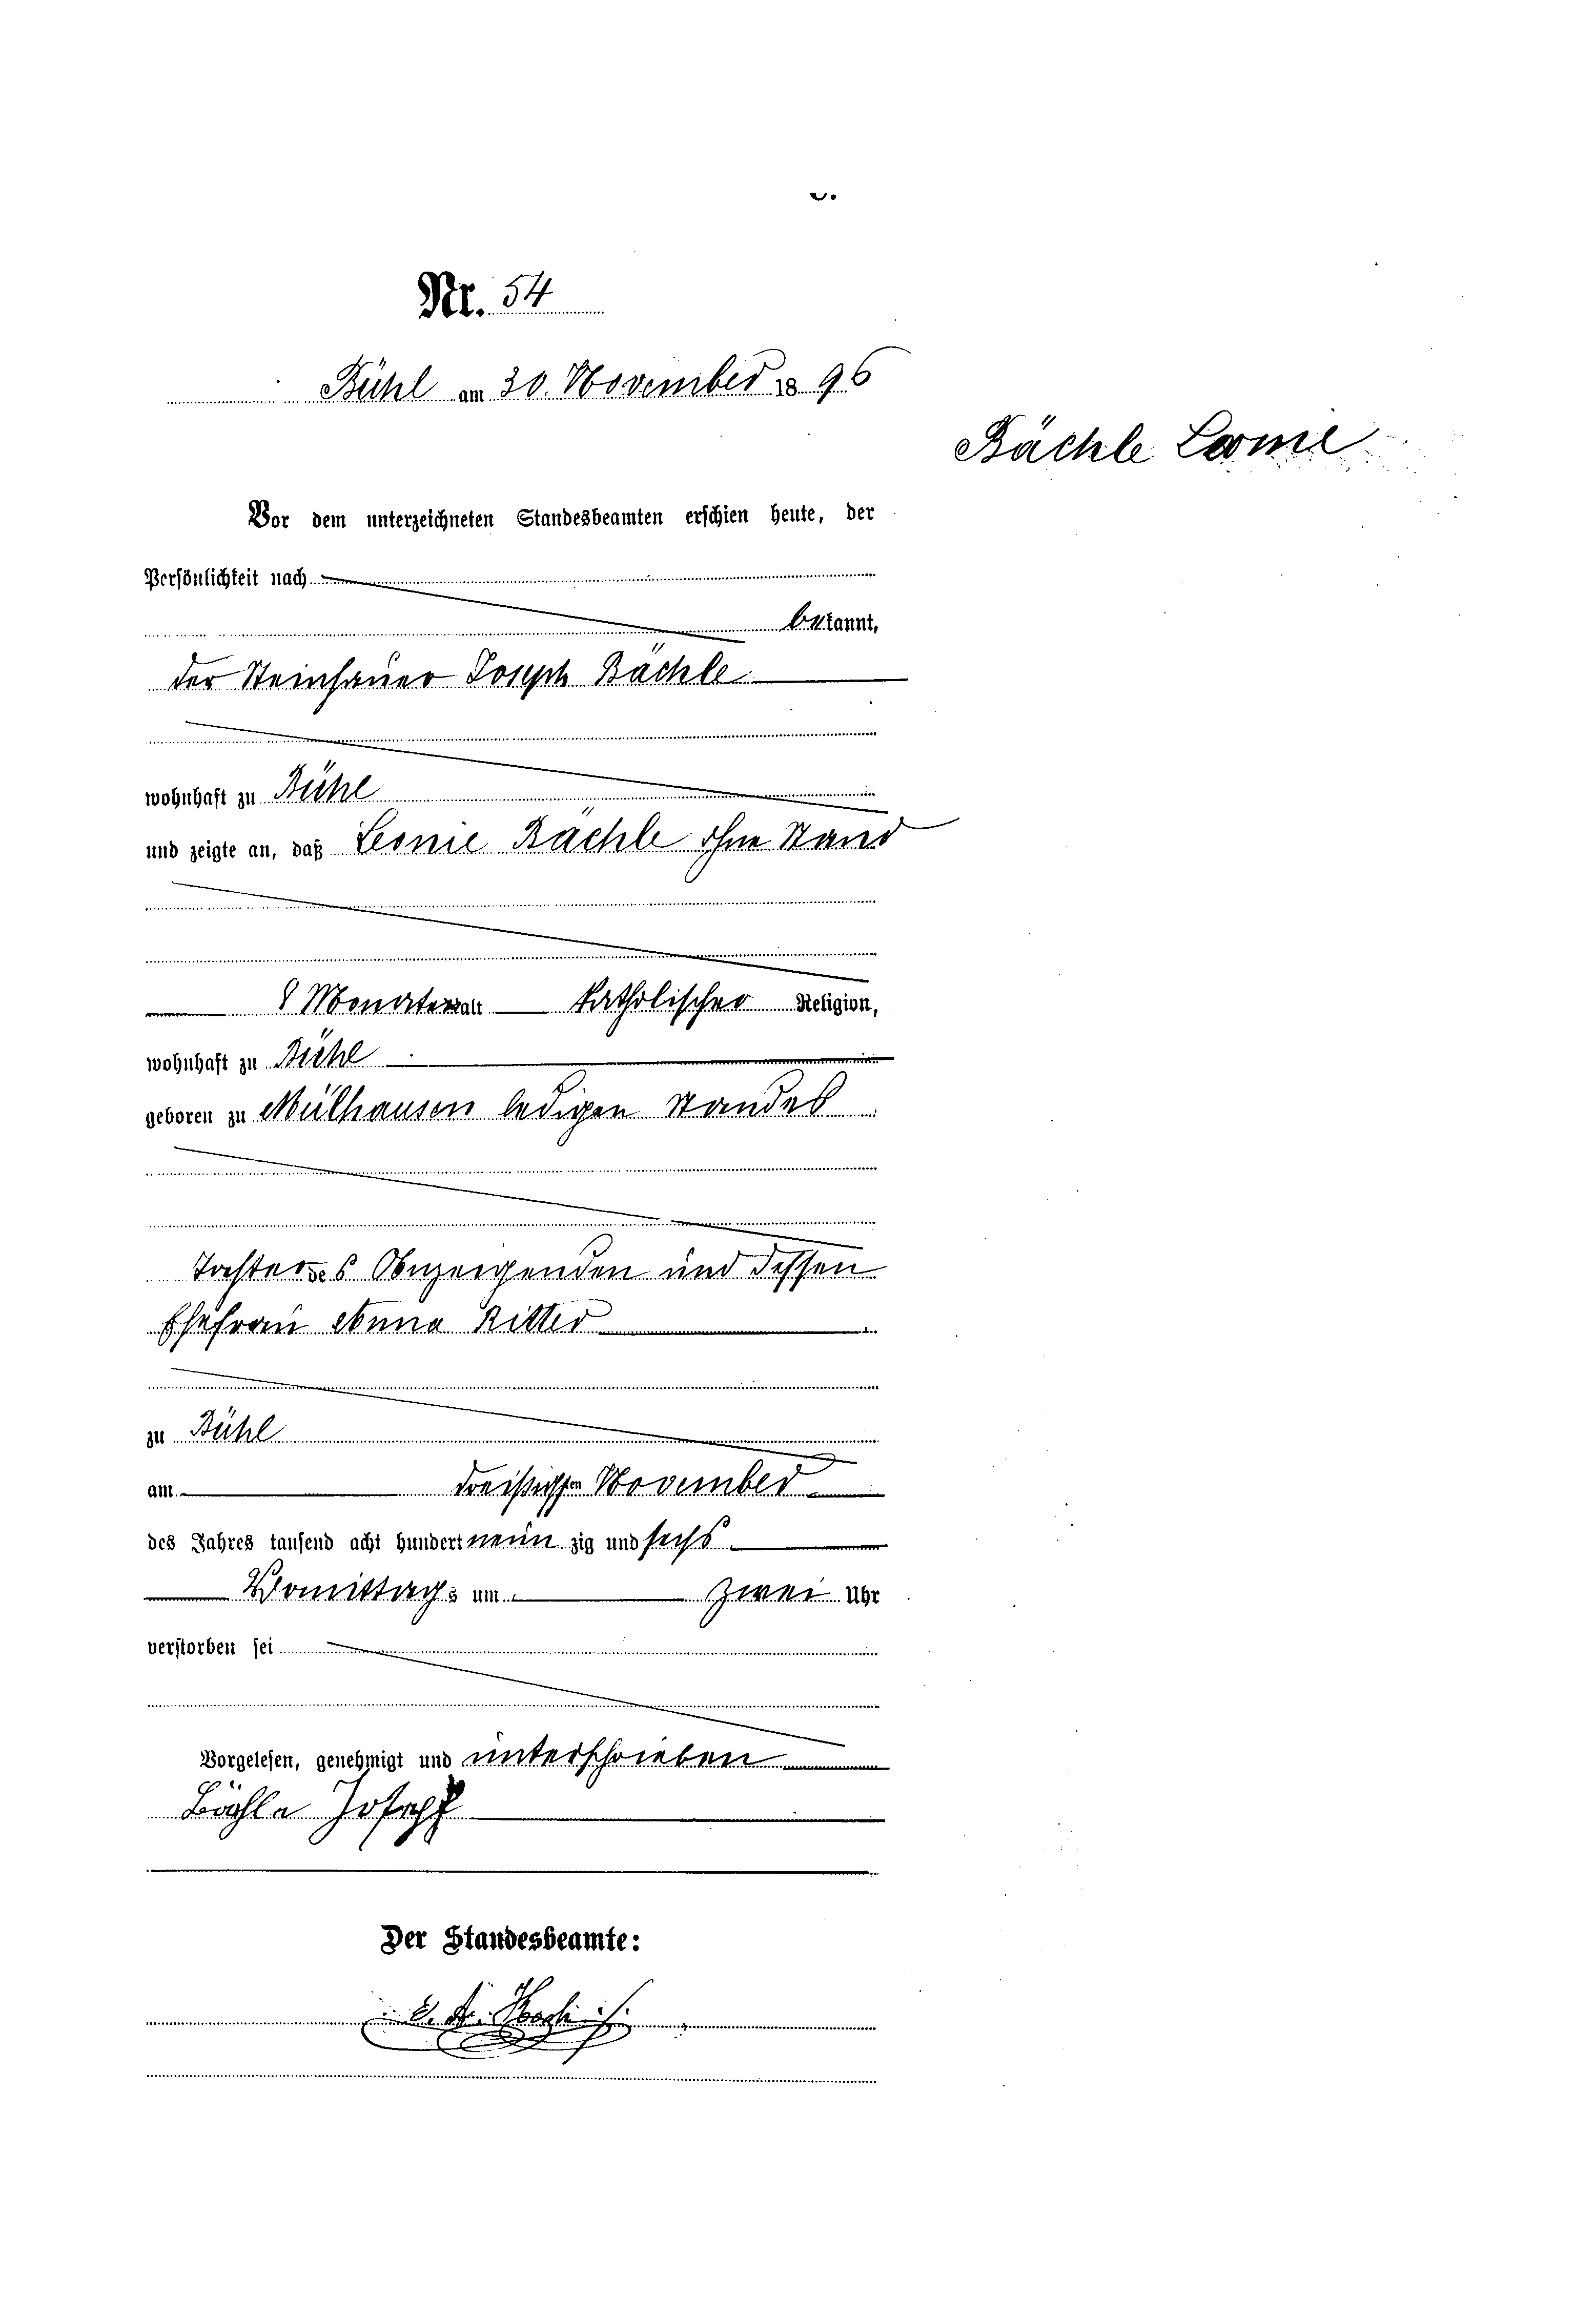 Nr. 54
Bühl am 30. November 1896
Bächle Leonie
Vor dem unterzeichneten Standesbeamten erschien heute, der
Persönlichkeit nach
bekannt,
der Steinhauer Joseph Bächle
wohnhaft zu Bühl
und zeigte an, daß Leonie Bächle ohne Stand
8 Monate alt katholischer Religion,
wohnhaft zu Bühl
geboren zu Mülhausen ledigen Standes
Tochter des Anzeigenden und dessen
Ehefrau Anna Ritter
zu Bühl
am dreißigsten November
des Jahres tausend acht hundert neun zig und sechs
Vormittags um zwei Uhr
verstorben sei
Vorgelesen, genehmigt und unterschrieben
Bächle Joseph
Der Standesbeamte: